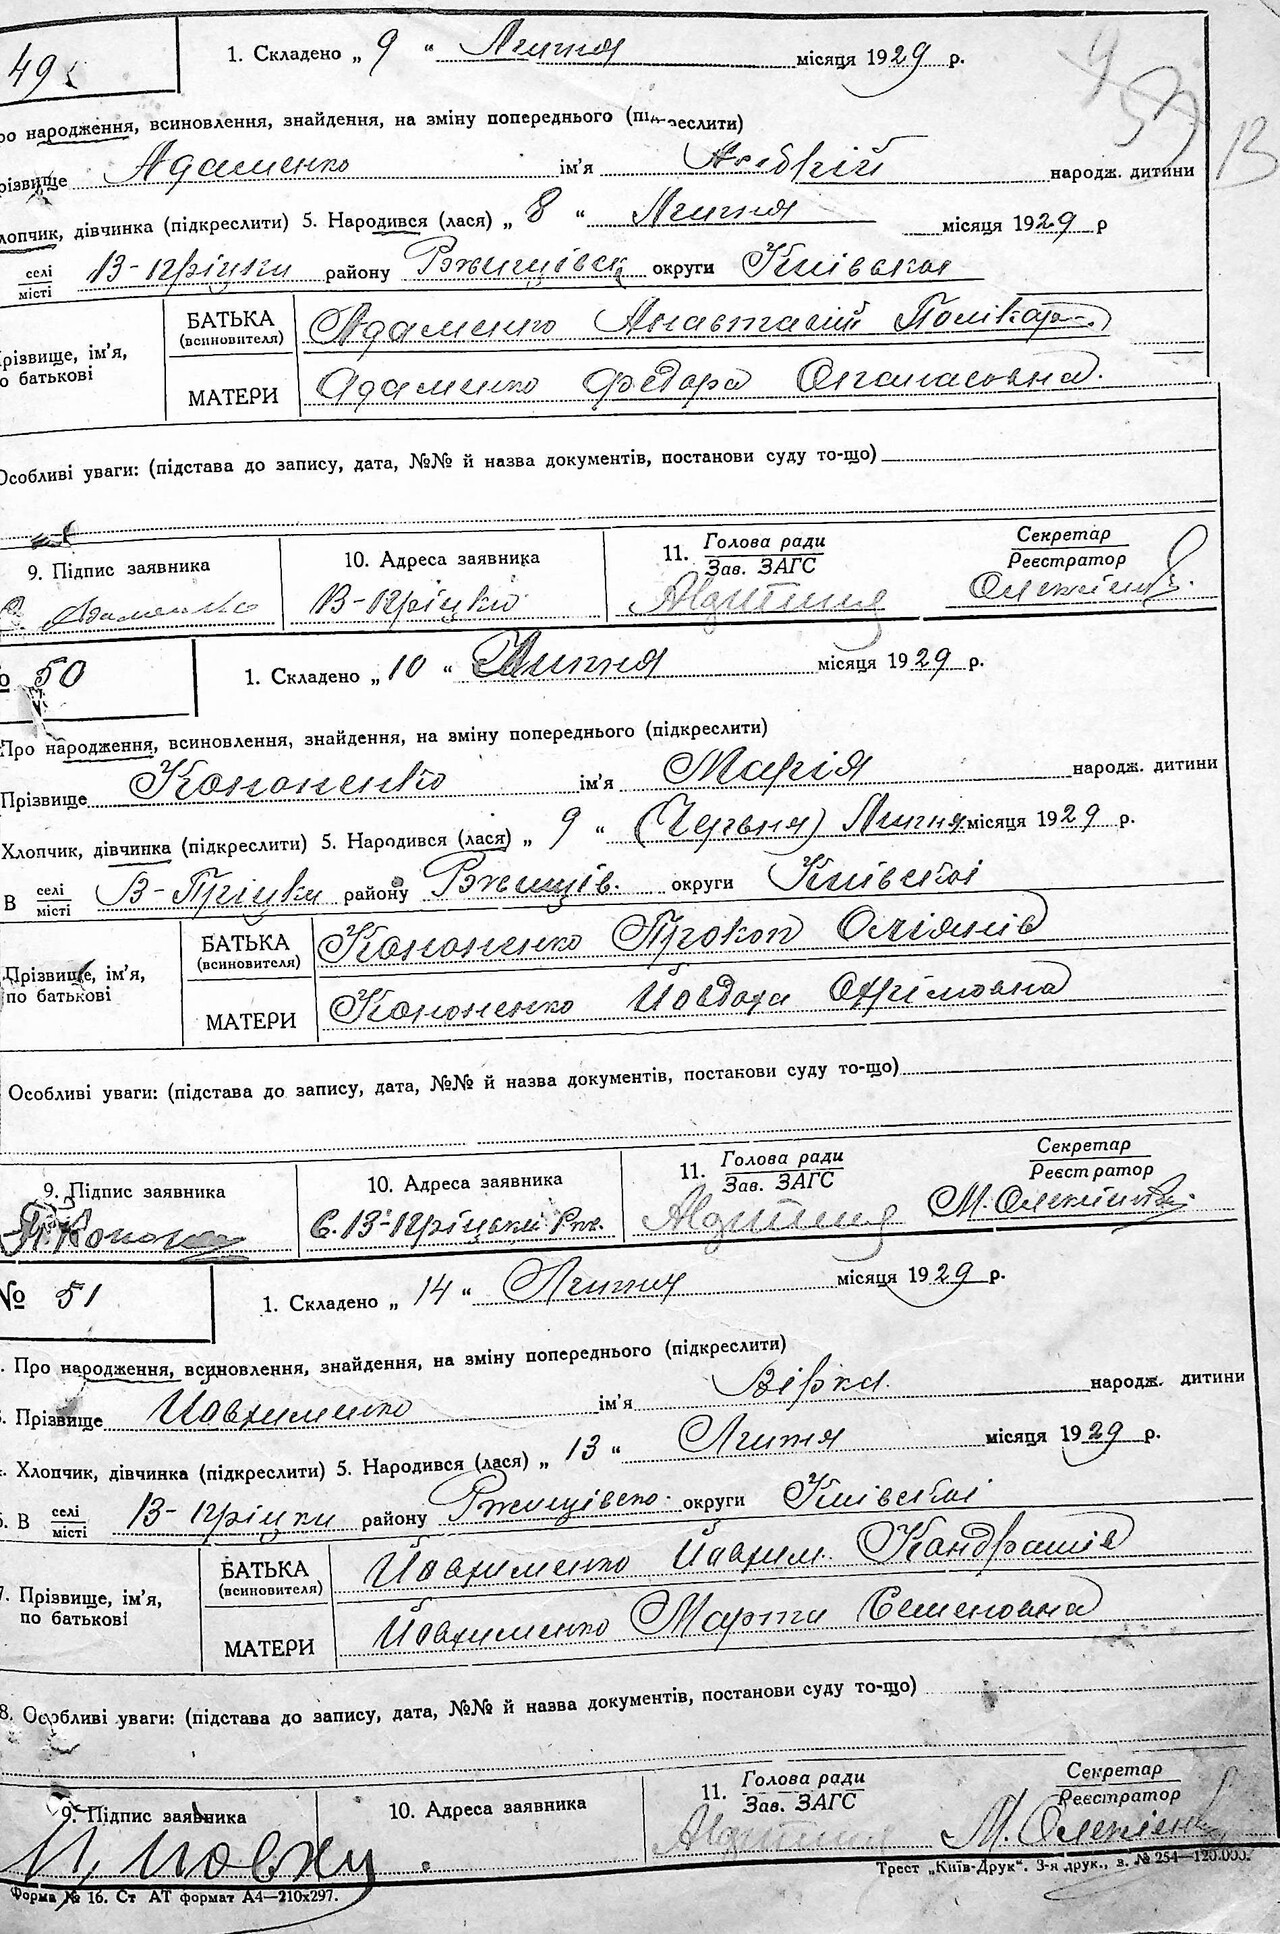 49
1. Складено „ 9 “ Липня місяця 1929 р.
народження, всиновлення, знайдення, на зміну попереднього (підкреслити)
Адаменко ім'я народж. дитини
дівчинка (підкреслити) 5. Народився (лася) „ 8 “ Липня місяця 1929 р
селі
місті
В-Пріцки району Ржищівськ округи Київськоі
БАТЬКА
(всиновителя)
Адаменко Полікар
прізвище, ім'я,
по батькові
МАТЕРИ
Адаменко Федора Опанасовна.
Особливі уваги: (підстава до запису, дата, №№ й назва документів, постанови суду то-що)
9. Підпис заявника
10. Адреса заявника
11. Голова ради
Зав. ЗАГС
Секретар
Реєстратор
Адаменко
В-Пріцки
№ 50
1. Складено „ 10 “ Липня місяця 1929 р.
Про народження, всиновлення, знайдення, на зміну попереднього (підкреслити)
Прізвище Кононенко ім'я Марія народж. дитини
Хлопчик, дівчинка (підкреслити) 5. Народився (лася) „ 9 “ (Червня) Липня місяця 1929 р.
В селі
місті
В-Пріцки району Ржищів. округи Київськоі
БАТЬКА
(всиновителя)
Кононенко Прокоп
Прізвище, ім'я,
по батькові
МАТЕРИ
Кононенко Йовдоха
Особливі уваги: (підстава до запису, дата, №№ й назва документів, постанови суду то-що)
9. Підпис заявника
10. Адреса заявника
11. Голова ради
Зав. ЗАГС
Секретар
Реєстратор
с. В-Пріцьки Рж.
№ 51
1. Складено „ 14 “ Липня місяця 1929 р.
Про народження, всиновлення, знайдення, на зміну попереднього (підкреслити)
3. Прізвище Йовхименко ім'я Вірка народж. дитини
Хлопчик, дівчинка (підкреслити) 5. Народився (лася) „ 13 “ Липня місяця 1929 р.
6. В селі
місті
В-Пріцки району Ржищівсько. округи Київськоі
БАТЬКА
(всиновителя)
Йовхименко Йовхим. Кандратів
7. Прізвище, ім'я,
по батькові
МАТЕРИ
Йовхименко Марта Семеновна
8. Особливі уваги: (підстава до запису, дата, №№ й назва документів, постанови суду то-що)
9. Підпис заявника
10. Адреса заявника
11. Голова ради
Зав. ЗАГС
Секретар
Реєстратор
Форма № 16. Ст АТ формат А4—210х297.
Трест „Київ-Друк“. 3-я друк., з. № 254—120.000.